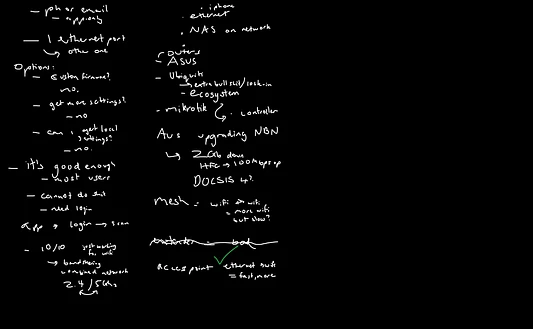 - ph or email
- app only
- 1 ethernet port
↳ other one
Options:
- custom firmware?
no.
- get more settings?
- no
- can i get local settings?
- no.
- it's good enough
- most users
- cannot do
- need login
app → login → scan
- 10/10 just working for wifi
↳ bandsteering
combined network
2.4/5Ghz
. iphone
. ethernet
. NAS on network
. routers
- ASUS
- Ubiquiti
→ extra bullshit/lock-in
- ecosystem
- mikrotik
controller
Aus upgrading NBN
↳ 2Gb down
HFC → 100Mbps up
DOCSIS 4?
mesh = wifi wifi
= more wifi
but slow?
extender = bad
access point ethernet
= fast, more